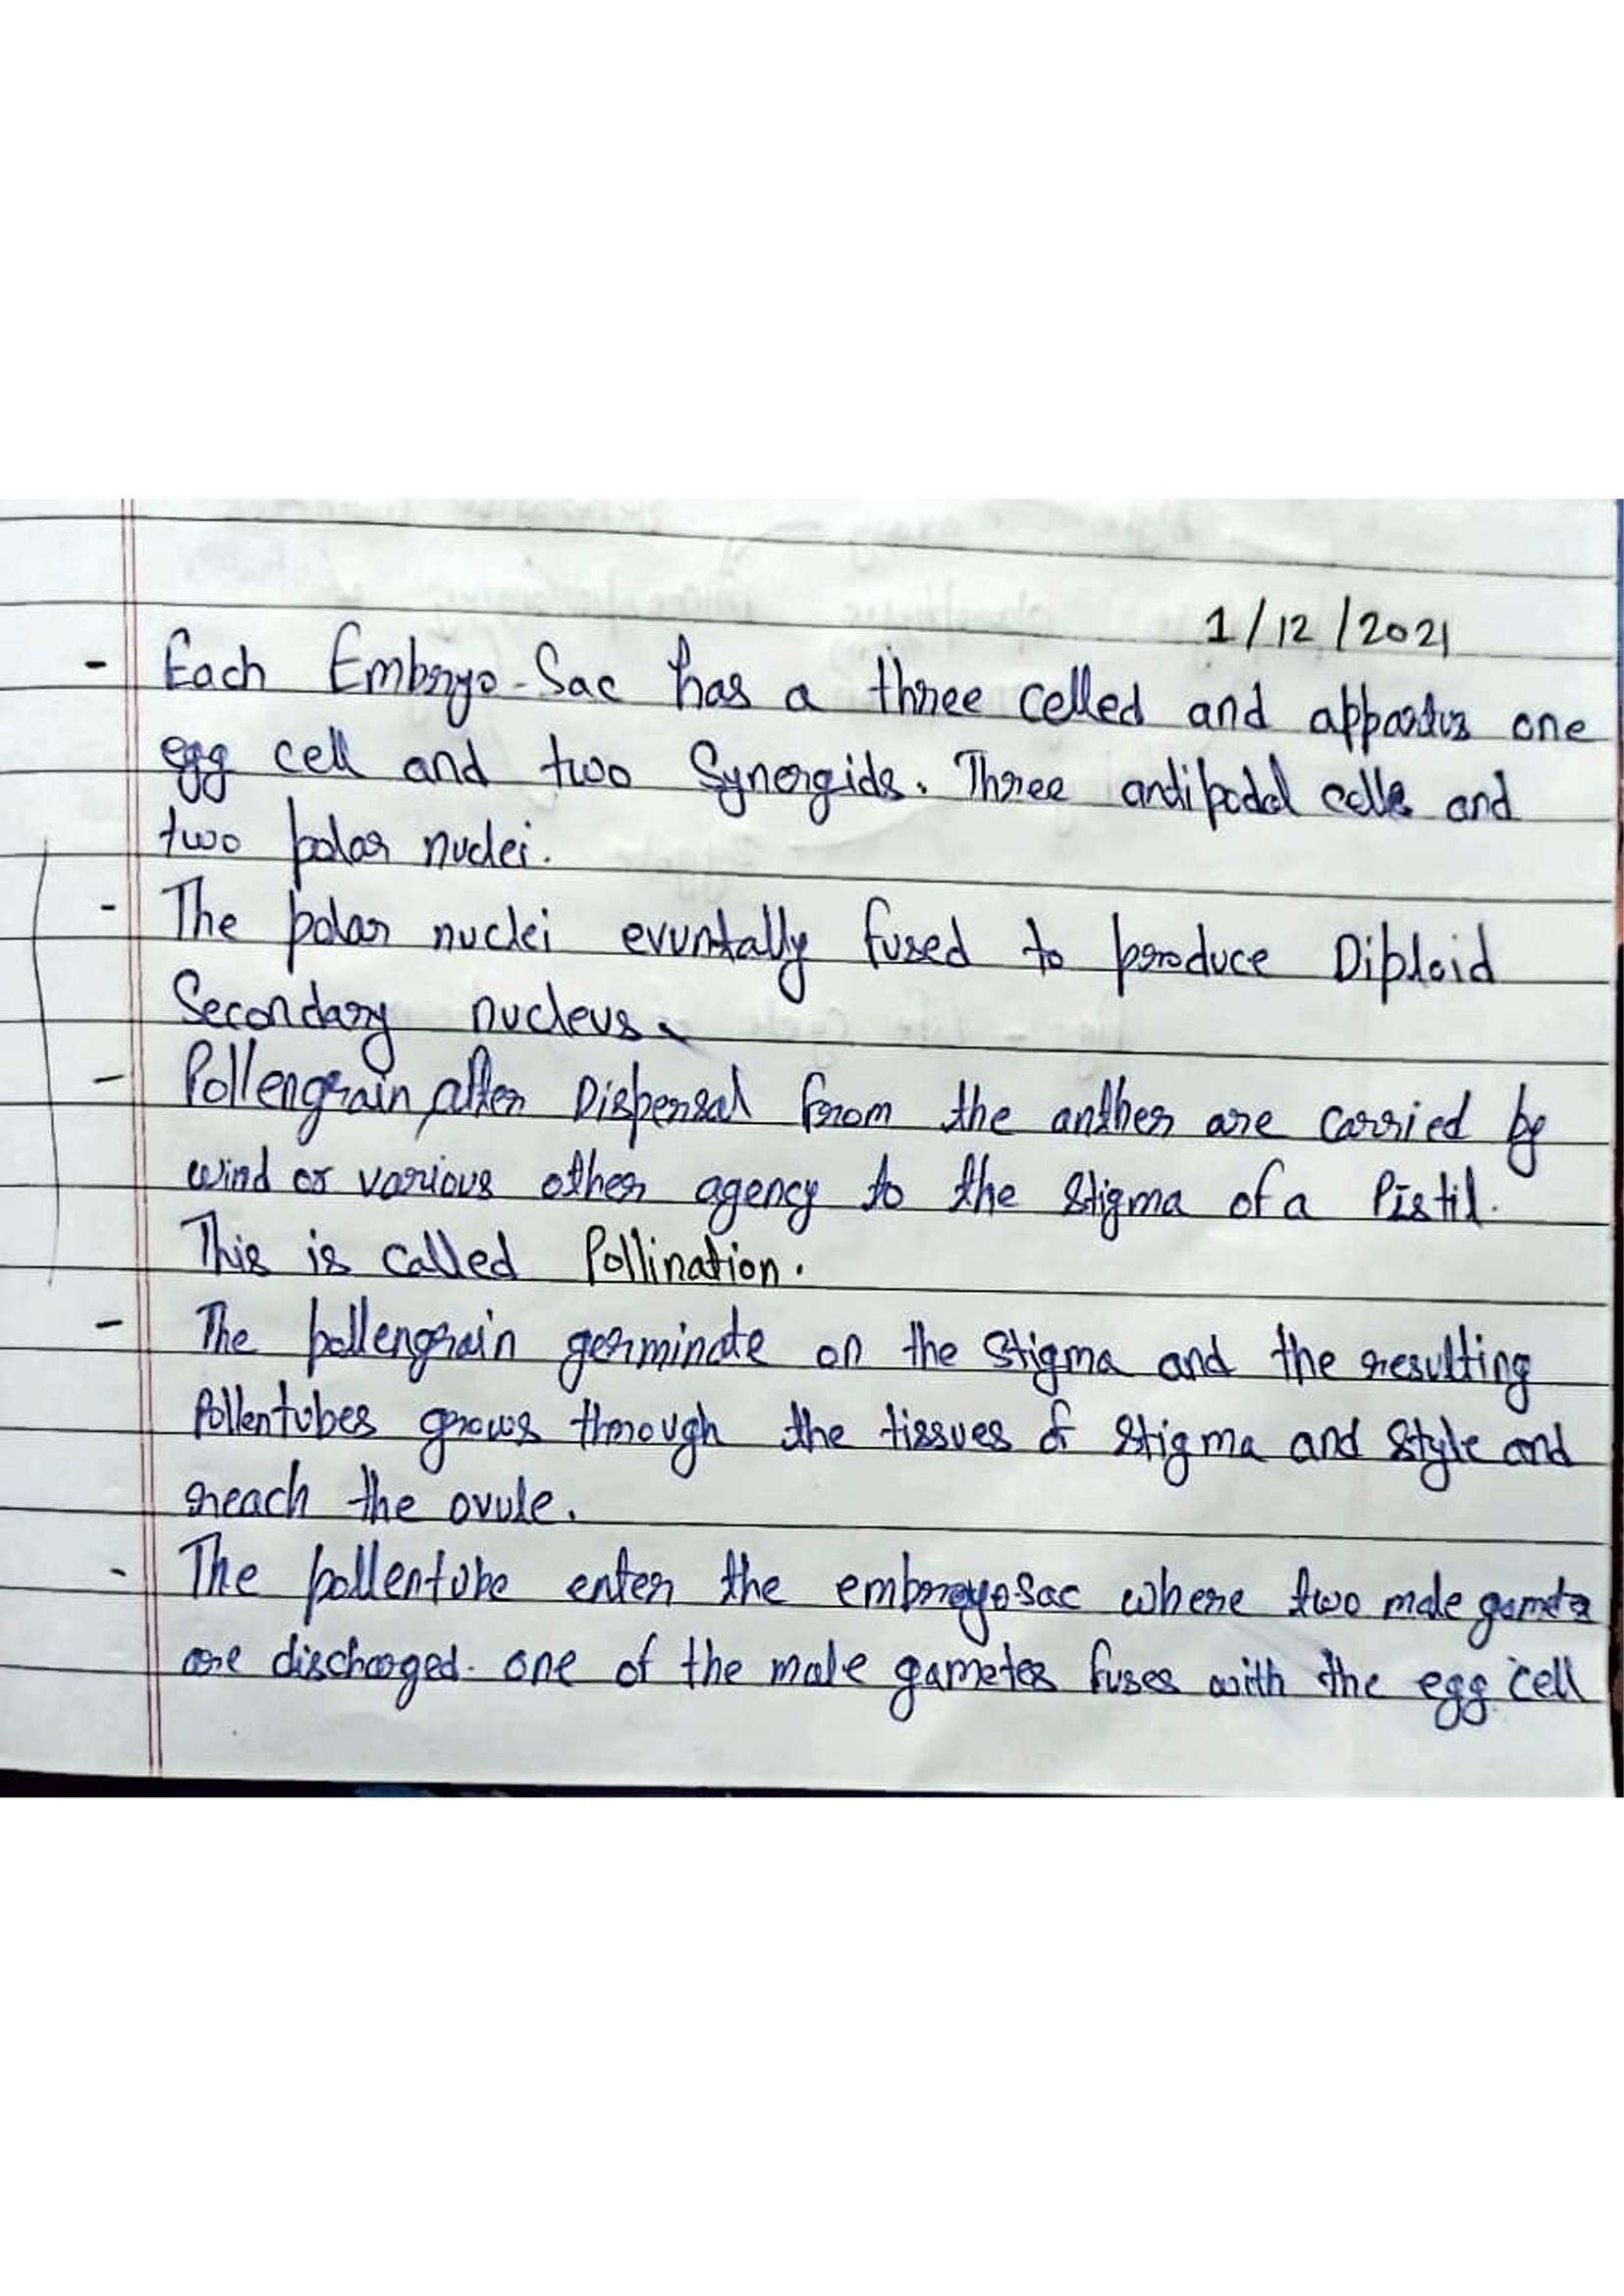 1/12/2021
- Each Embryo-Sac has a three celled and apparatus one
egg cell and two Synergids. Three antipodal cells and
two polar nuclei.
- The polar nuclei evuntally fused to produce Diploid
Secondary nucleus.
- Pollengrain after Dispersal from the anther are carried by
wind or various other agency to the Stigma of a Pistil.
This is called Pollination.
- The pollengrain germinate on the Stigma and the resulting
Pollentubes grows through the tissues of Stigma and Style and
reach the ovule.
- The pollentube enter the embryosac where two male gamets
are discharged. one of the male gametes fuses with the egg cell